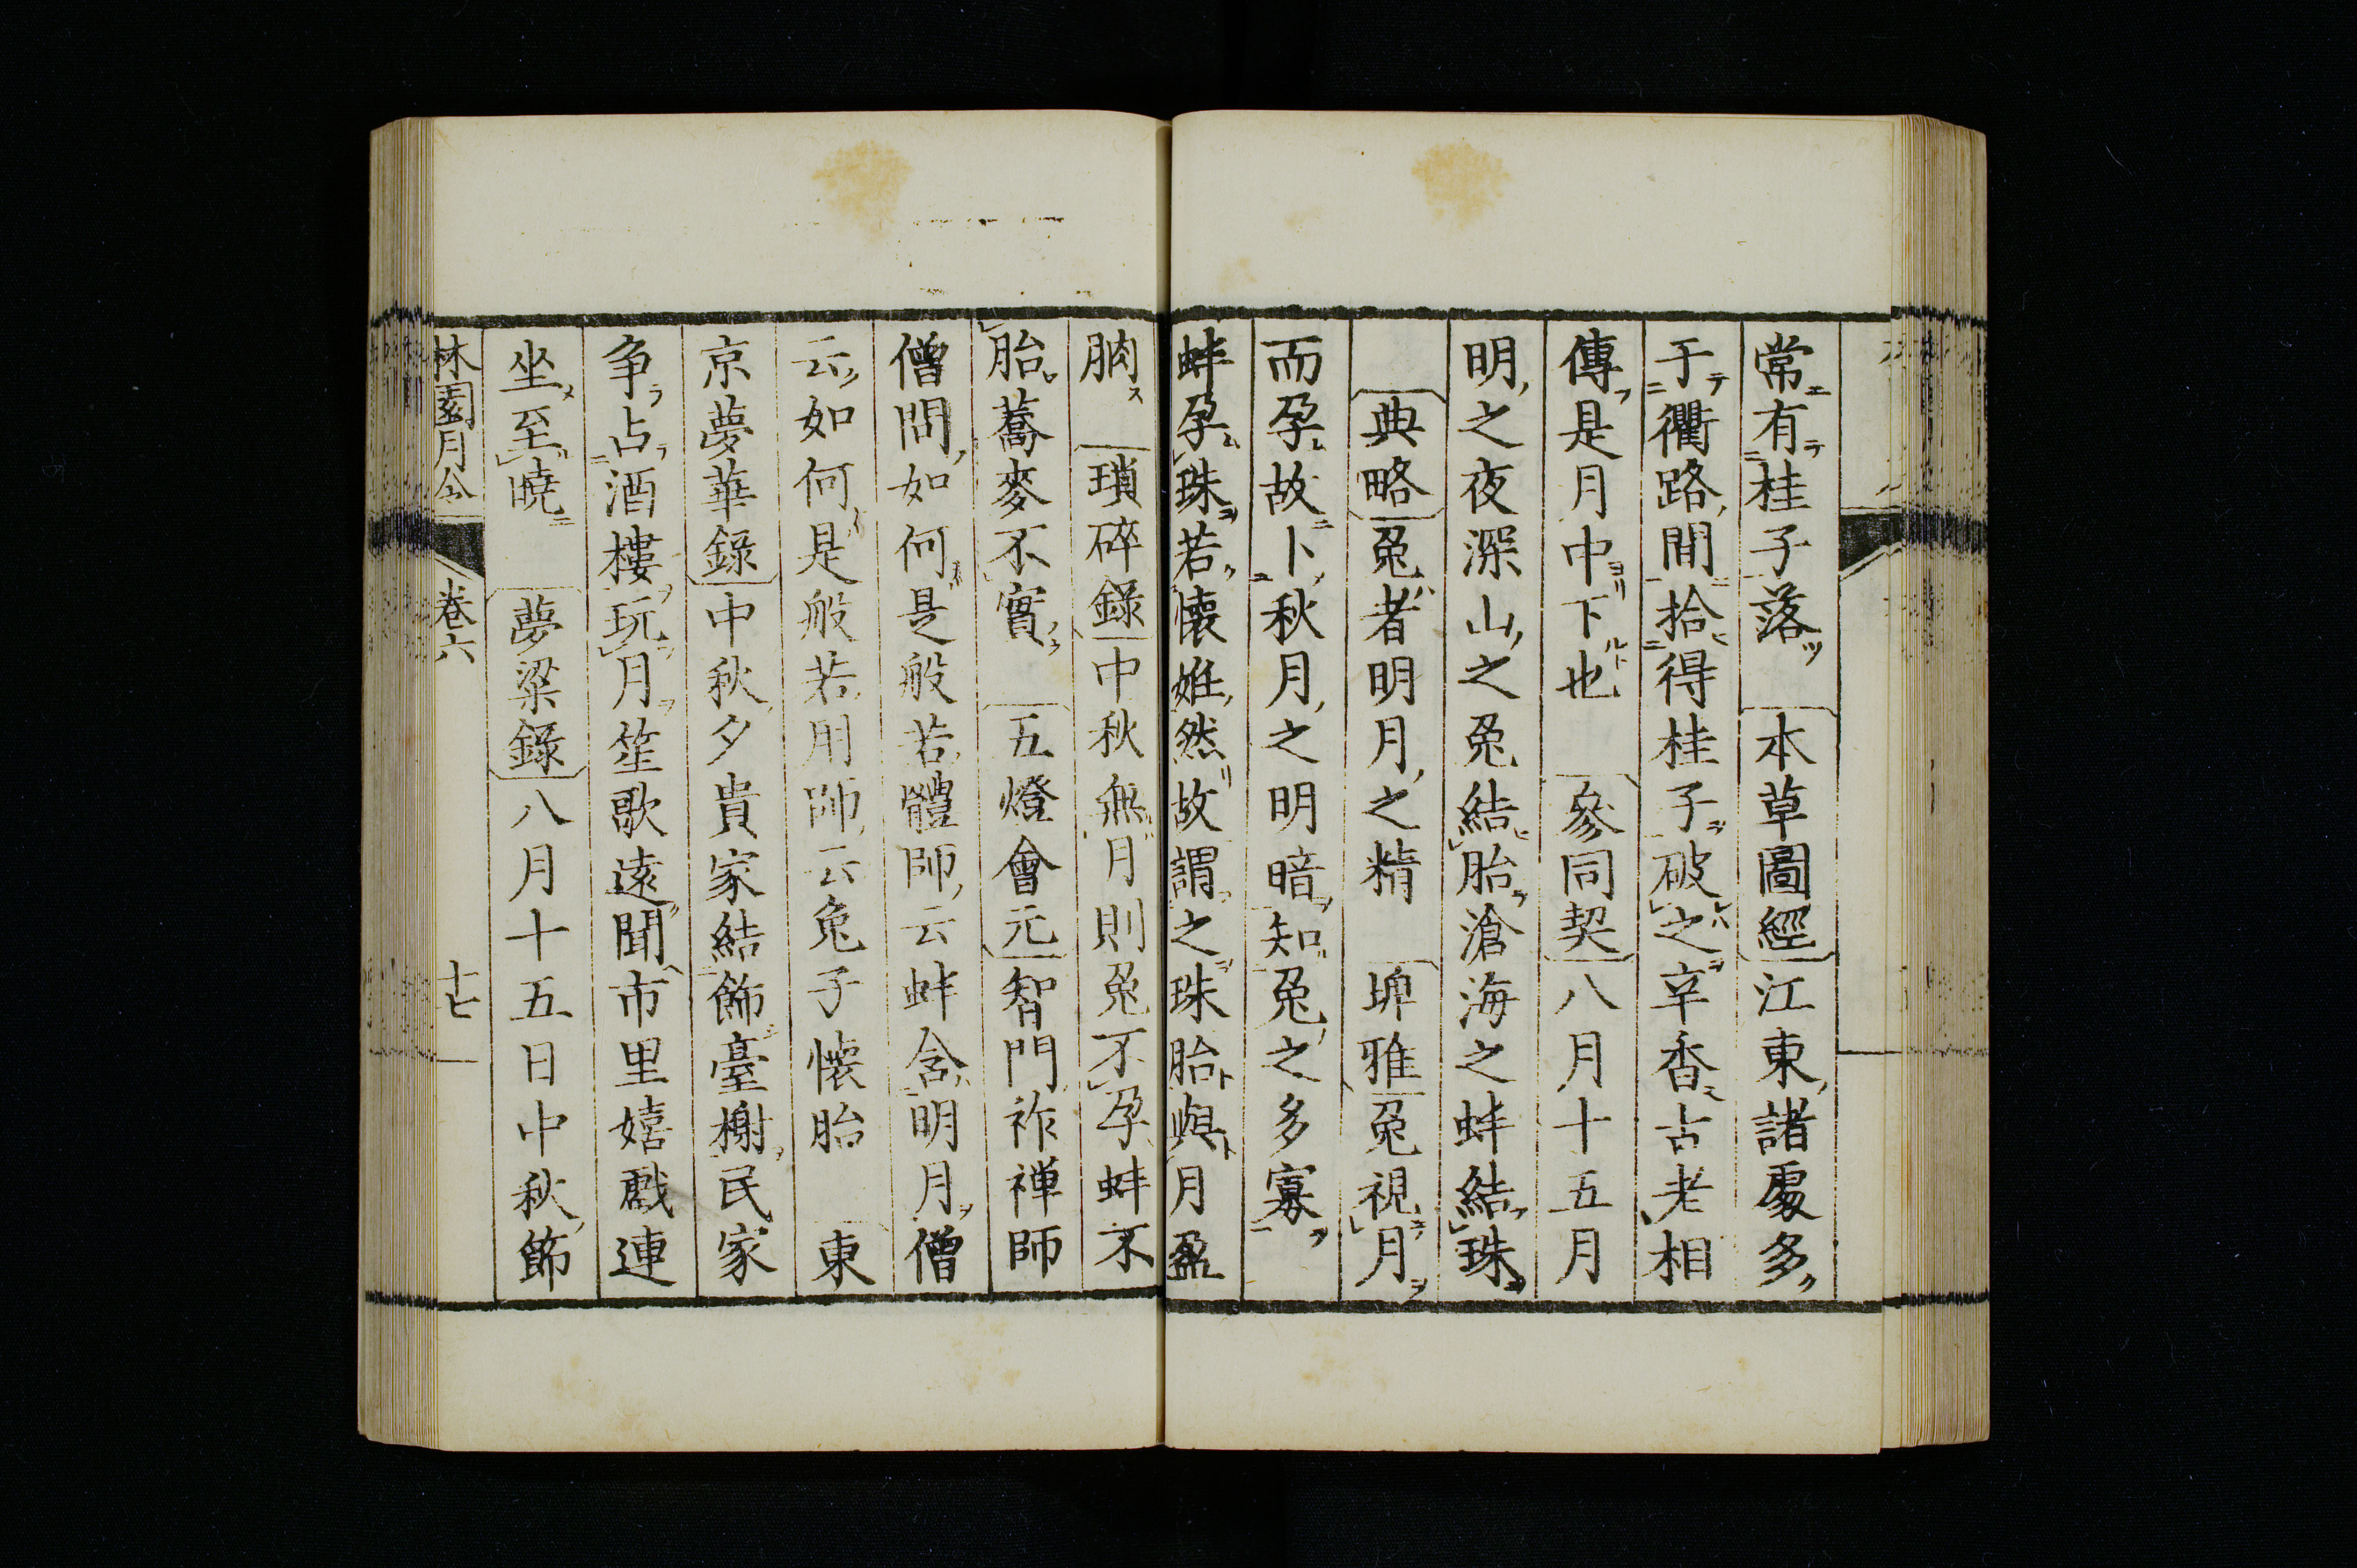 常有桂子落 本草圖經江東諸處多
于衢路間拾得桂子破之辛香古老相
傳是月中下也 參同契八月十五月
明之夜深山之兎結胎滄海之蚌結珠
典略兎者明月之精 埤雅兎視月
而孕故卜秋月之明暗知兎之多寡
蚌孕珠若懐姙然故謂之珠胎與月盈
朒 瑣碎錄中秋無月則兎不孕蚌不
胎蕎麥不實 五燈會元智門祚禅師
僧問如何是般若體師云蚌含明月僧
云如何是般若用師云兔子懐胎 東
京夢華錄中秋夕貴家結飾臺榭民家
争占酒樓玩月笙歌遠聞市里嬉戲連
坐至曉 夢粱錄八月十五日中秋節
林園月令 卷六 十七